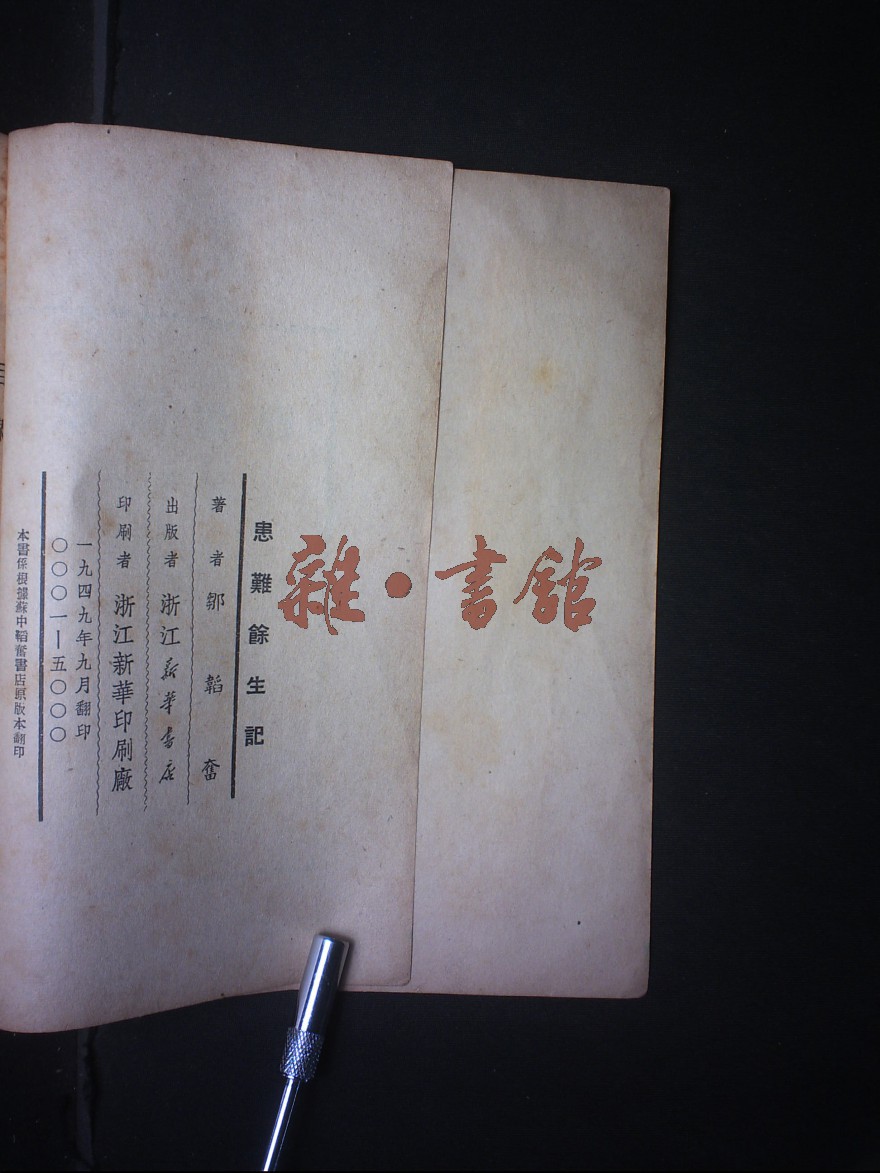 患難餘生記
著者 鄒韜奮
出版者 浙江新華書店
印刷者 浙江新華印刷廠
一九四九年九月翻印
〇〇〇一—五〇〇〇
本書係根據蘇中韜奮書店原版本翻印
雜·書館